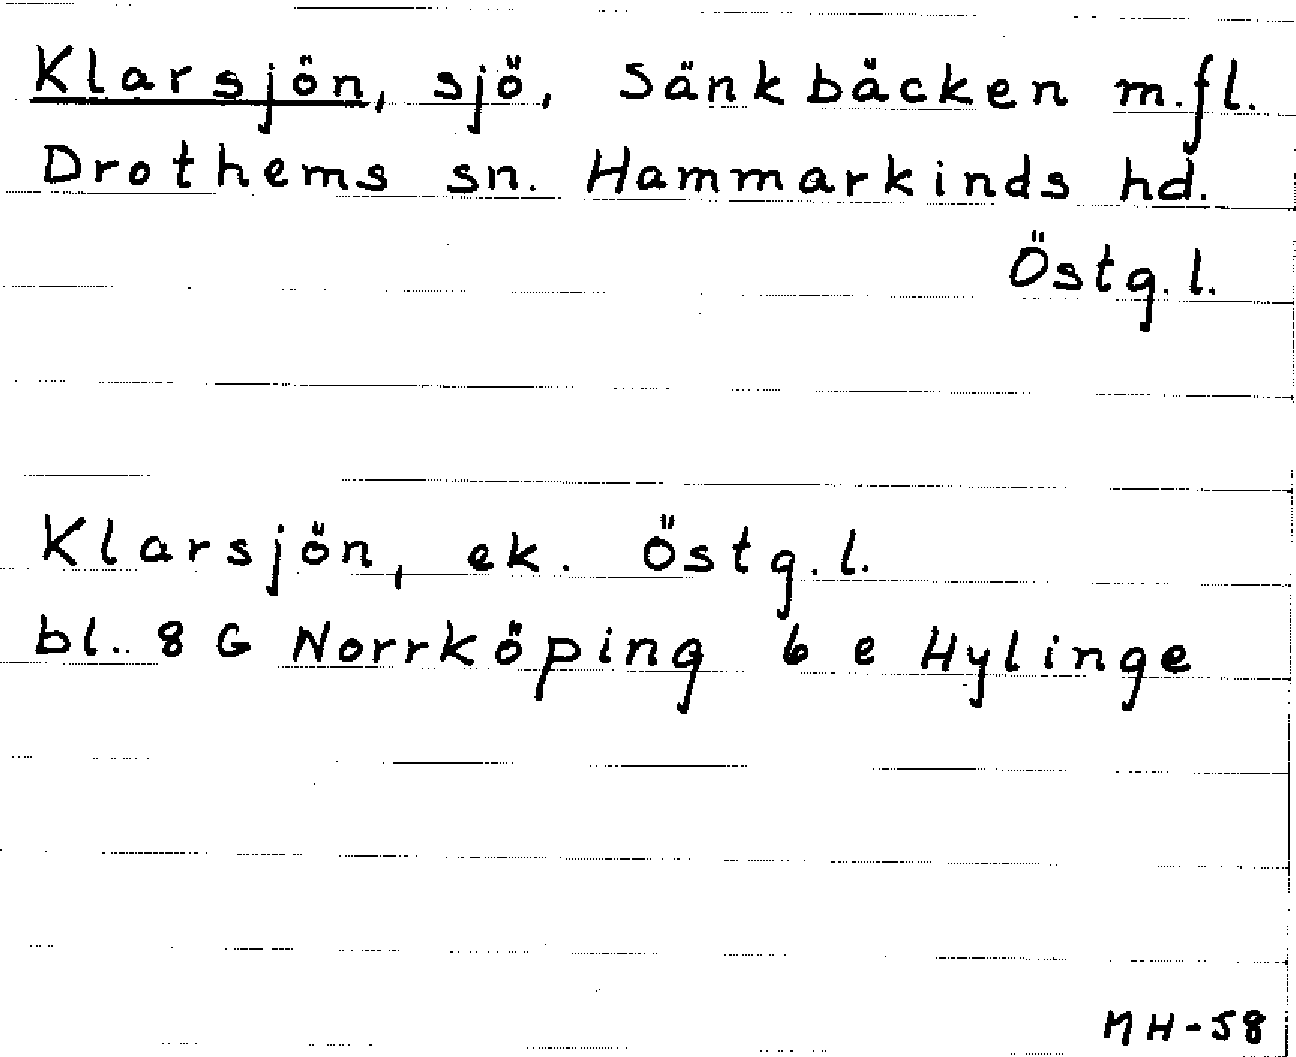 Klarsjön, sjö, Sänkbäcken m.fl.
Drothems sn. Hammarkinds hd.
Östg.l.
Klarsjön, ek. Östg.l.
bl. 8 G Norrköping 6 e Hylinge
MH-58